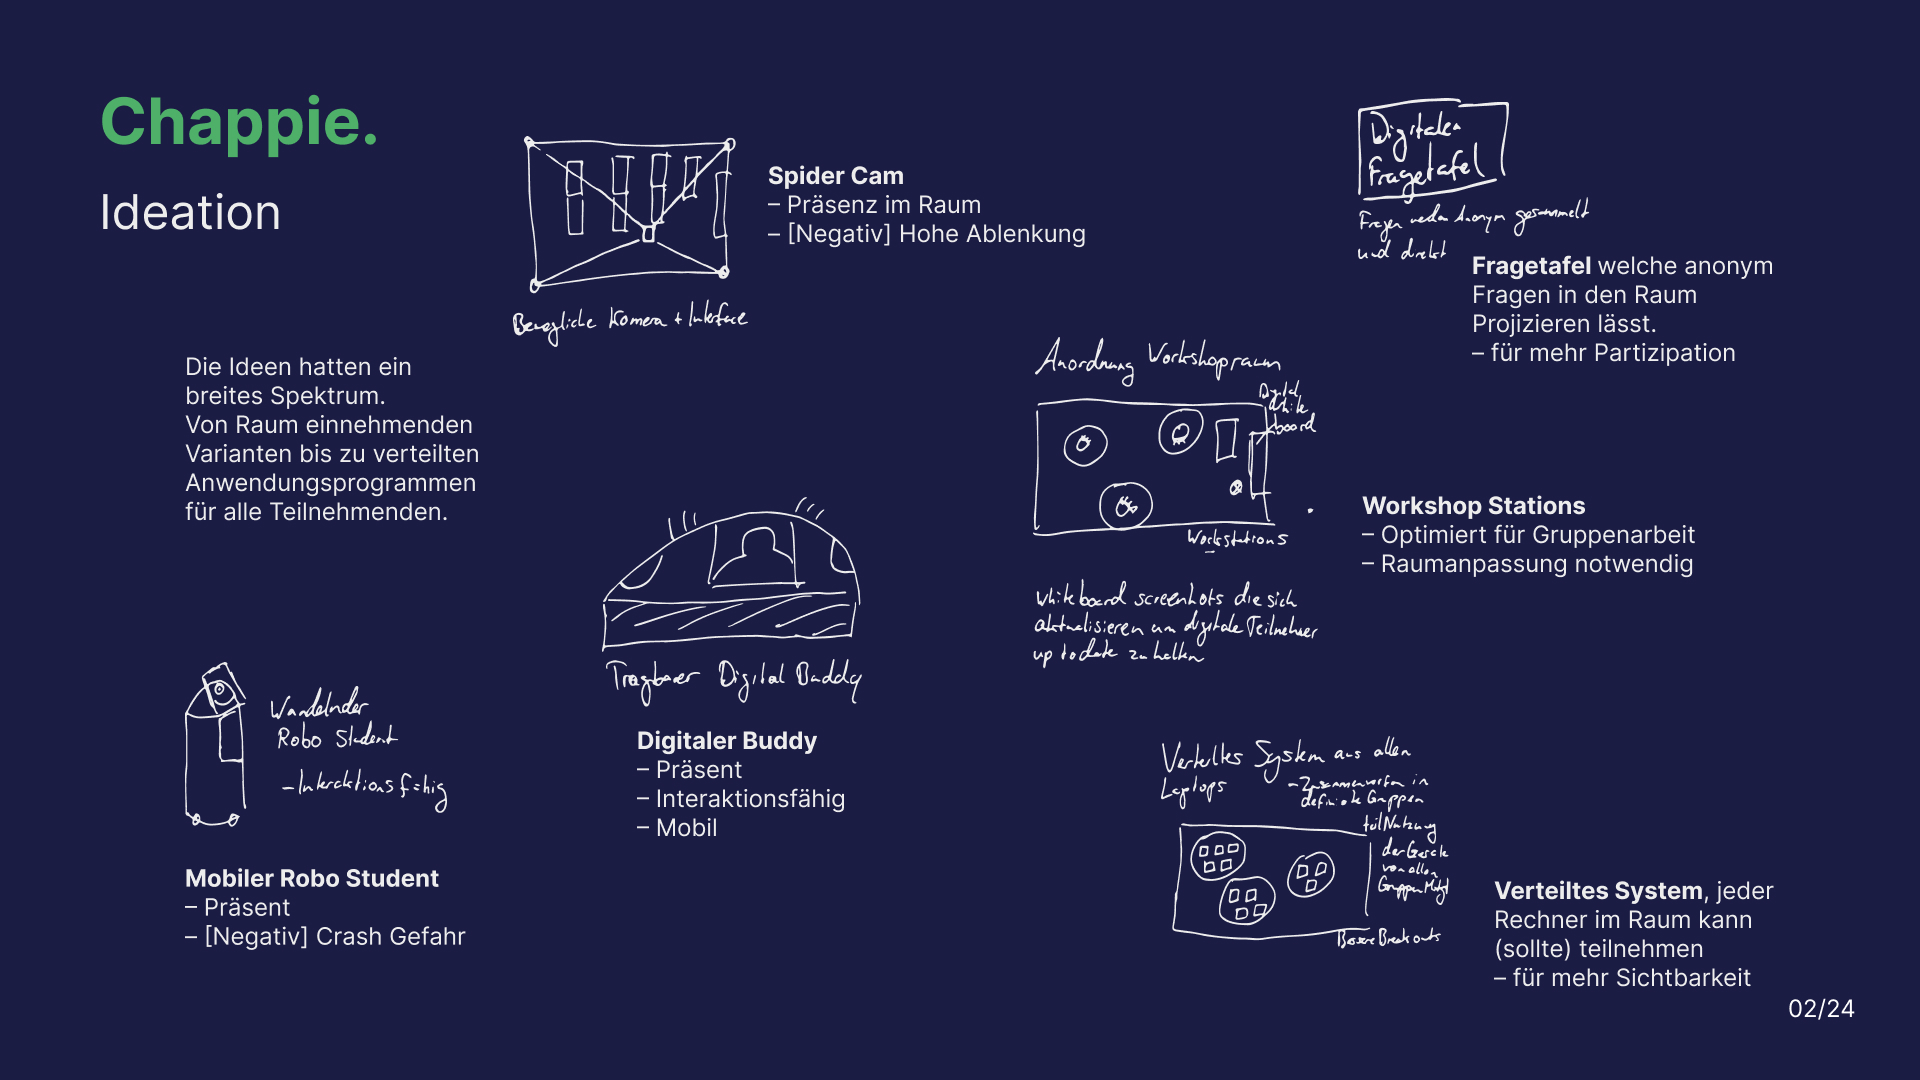 Chappie.
Ideation
Die Ideen hatten ein
breites Spektrum.
Von Raum einnehmenden
Varianten bis zu verteilten
Anwendungsprogrammen
für alle Teilnehmenden.
Bewegliche Kamera + Interface
Spider Cam
– Präsenz im Raum
– [Negativ] Hohe Ablenkung
Digitalen
Fragetafel
Fragen werden Anonym gesammelt
und direkt
Fragetafel welche anonym
Fragen in den Raum
Projizieren lässt.
– für mehr Partizipation
Anordnung Workshopraum
Digital
White
board
Workstations
Whiteboard screenshots die sich
aktualisieren um digitale Teilnehmer
up to date zu halten
Workshop Stations
– Optimiert für Gruppenarbeit
– Raumanpassung notwendig
Tragbarer Digital Buddy
Digitaler Buddy
– Präsent
– Interaktionsfähig
– Mobil
Wandelnder
Robo Student
– Interaktionsfähig
Mobiler Robo Student
– Präsent
– [Negativ] Crash Gefahr
Verteiltes System aus allen
Laptops
– Zusammenwerfen in
definierte Gruppen
teilNutzung
der Geräte
von allen
Bessere Breakouts
Verteiltes System, jeder
Rechner im Raum kann
(sollte) teilnehmen
– für mehr Sichtbarkeit
02/24